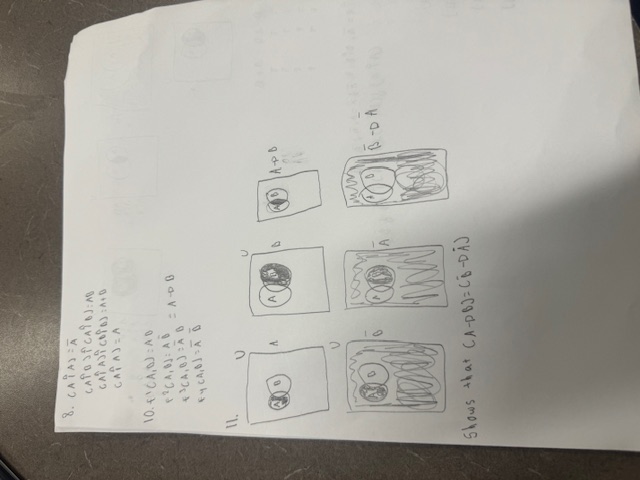 8. (A↑A)=Ā
(A↑B)↑(A↑B)=AB
(A↑A)↑(B↑B)=A+B
(A↑A)=A
10. f1(A,B)=AB
f2(A,B)=A B̄ = A→B
f3(A,B)=Ā B
f4(A,B)=Ā B̄
11.
U U
A B A A B B A B A→B
U
A B B̄ A B Ā A B B̄→Ā
Shows that (A→B)=(B̄→Ā)